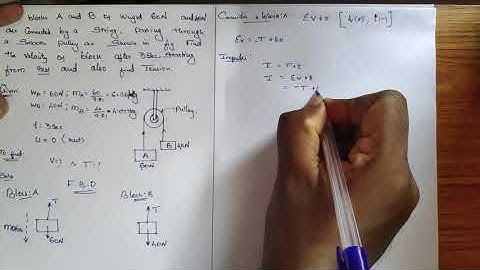 blocks A and B of weight 60N and 40N
are connected by a String. Passing through
a Smooth pulley as Shown in fig Find
the velocity of block after 3sec Starting
from Rest and also find Tension.
WA = 60N ; MA = 60/9.81 = 6.
WB = 40N ; MB = 40/9.81 = 4.
t = 3sec
u = 0 (rest)
V = ? T = ?
Pulley
A
60N
B
40N
F.B.D
Block: A
T
60N
Block: B
T
40N
Consider block: A
ΣV ≠ 0
ΣV = -T + 60
Impulse:
I = F × t
I = ΣV × t
= -T +